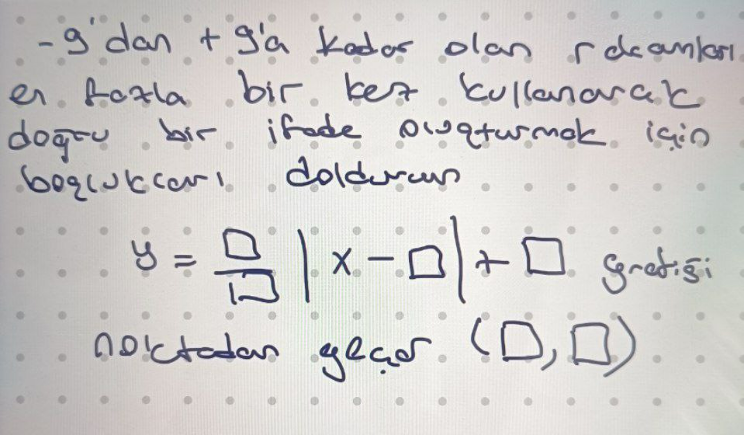 -9'dan +9'a kadar olan rakamları
en fazla bir kez kullanarak
doğru bir ifade oluşturmak için
boşlukları doldurun
y = □/□ |x - □| + □ grafiği
noktadan geçer (□, □)